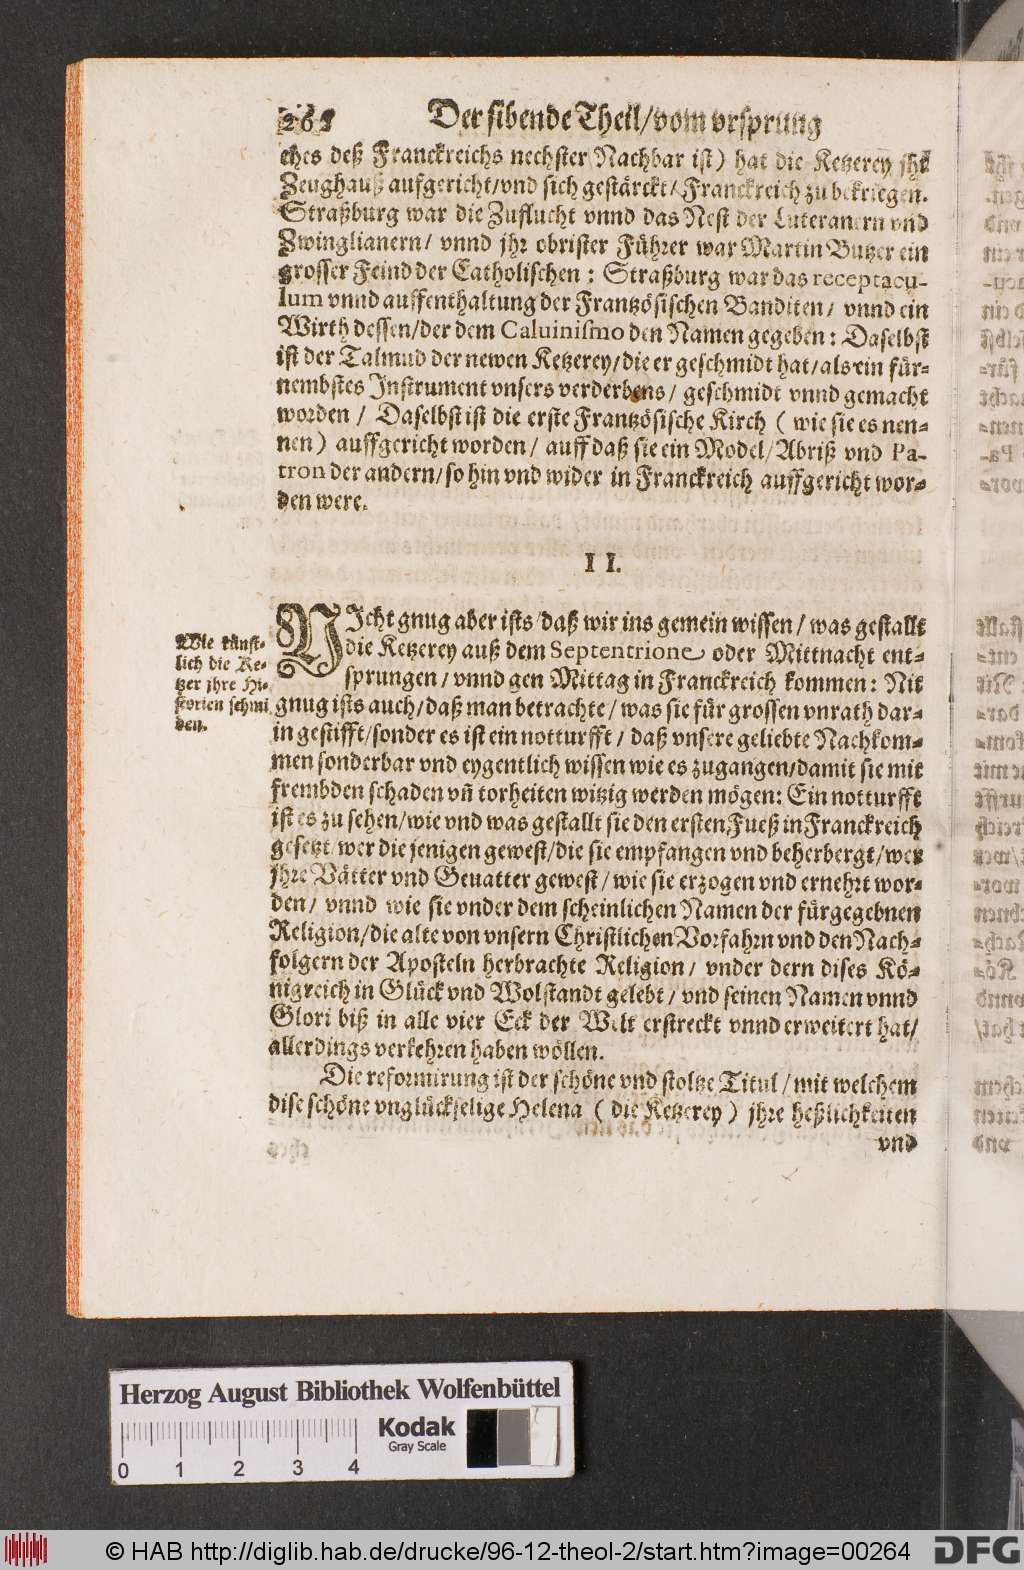 262 Der sibende Theil/vom vrsprung
ches deß Franckreichs nechster Nachbar ist) hat die Ketzerey jhr
Zeughauß aufgericht/vnd sich gestärckt/Franckreich zu bekriegen.
Straßburg war die Zuflucht vnnd das Nest der Luteranern vnd
Zwinglianern/ vnnd jhr obrister Führer war Martin Butzer ein
grosser Feind der Catholischen: Straßburg war das receptacu-
lum vnnd auffenthaltung der Frantzösischen Banditen/ vnnd ein
Wirth dessen/der dem Caluinismo den Namen gegeben: Daselbst
ist der Talmud der newen Ketzerey/die er geschmidt hat/als ein für-
nembstes Instrument vnsers verderbens/ geschmidt vnnd gemacht
worden/ Daselbst ist die erste Frantzösische Kirch (wie sie es nen-
nen) auffgericht worden/ auff daß sie ein Model/Abriß vnd Pa-
tron der andern/so hin vnd wider in Franckreich auffgericht wor-
den were.
II.
NIcht gnug aber ists/daß wir ins gemein wissen/ was gestallt
die Ketzerey auß dem Septentrione oder Mittnacht ent-
sprungen/ vnnd gen Mittag in Franckreich kommen: Nit
gnug ists auch/daß man betrachte/was sie für grossen vnrath dar-
in gestifft/sonder es ist ein notturfft/ daß vnsere geliebte Nachkom-
men sonderbar vnd eygentlich wissen wie es zugangen/damit sie mit
frembden schaden vñ torheiten witzig werden mögen: Ein notturfft
ist es zu sehen/wie vnd was gestallt sie den ersten Fueß in Franckreich
gesetzt/wer die jenigen gewest/die sie empfangen vnd beherbergt/wer
jhre Vätter vnd Gevatter gewest/wie sie erzogen vnd ernehrt wor-
den/ vnnd wie sie vnder dem scheinlichen Namen der fürgegebnen
Religion/die alte von vnsern Christlichen Vorfahrn vnd den Nach-
folgern der Aposteln herbrachte Religion/ vnder dern dises Kö-
nigreich in Glück vnd Wolstandt gelebt/ vnd seinen Namen vnnd
Glori biß in alle vier Eck der Welt erstreckt vnnd erweitert hat/
allerdings verkehren haben wöllen.
Die reformirung ist der schöne vnd stoltze Titul/mit welchem
dise schöne vnglückselige Helena (die Ketzerey) jhre heßlichkeiten
vnd
Wie künst-
lich die Ke-
tzer jhre Hi-
storien schmi
den.
Herzog August Bibliothek Wolfenbüttel
Kodak
Gray Scale
0 1 2 3 4
© HAB http://diglib.hab.de/drucke/96-12-theol-2/start.htm?image=00264
DFG